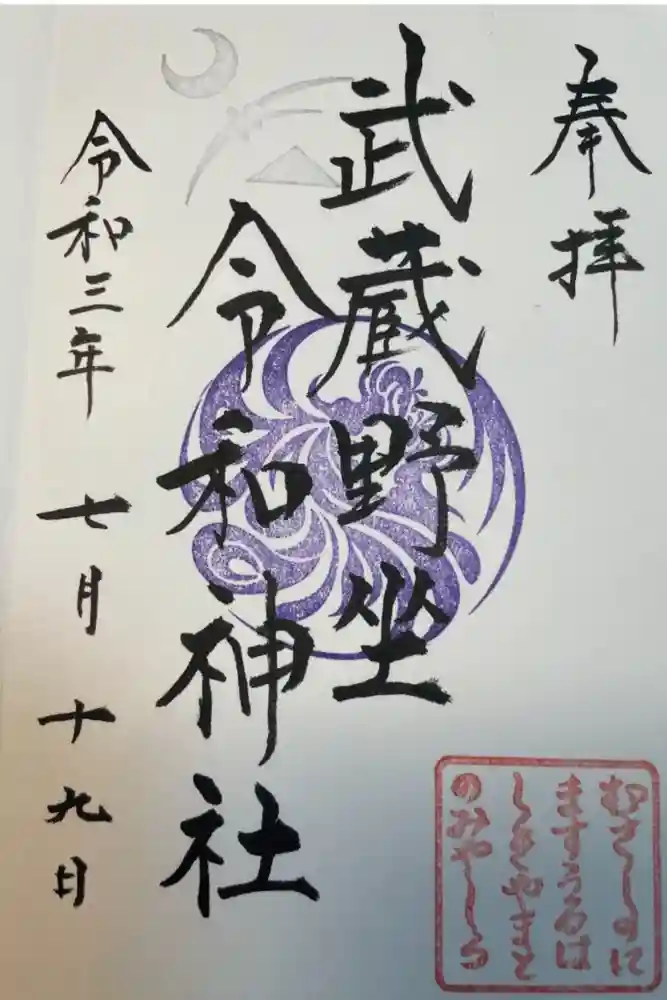 奉拝
武蔵野坐
令和神社
令和三年 七月 十九日
むさしのに
ますうるは
しきやまと
のみやしろ